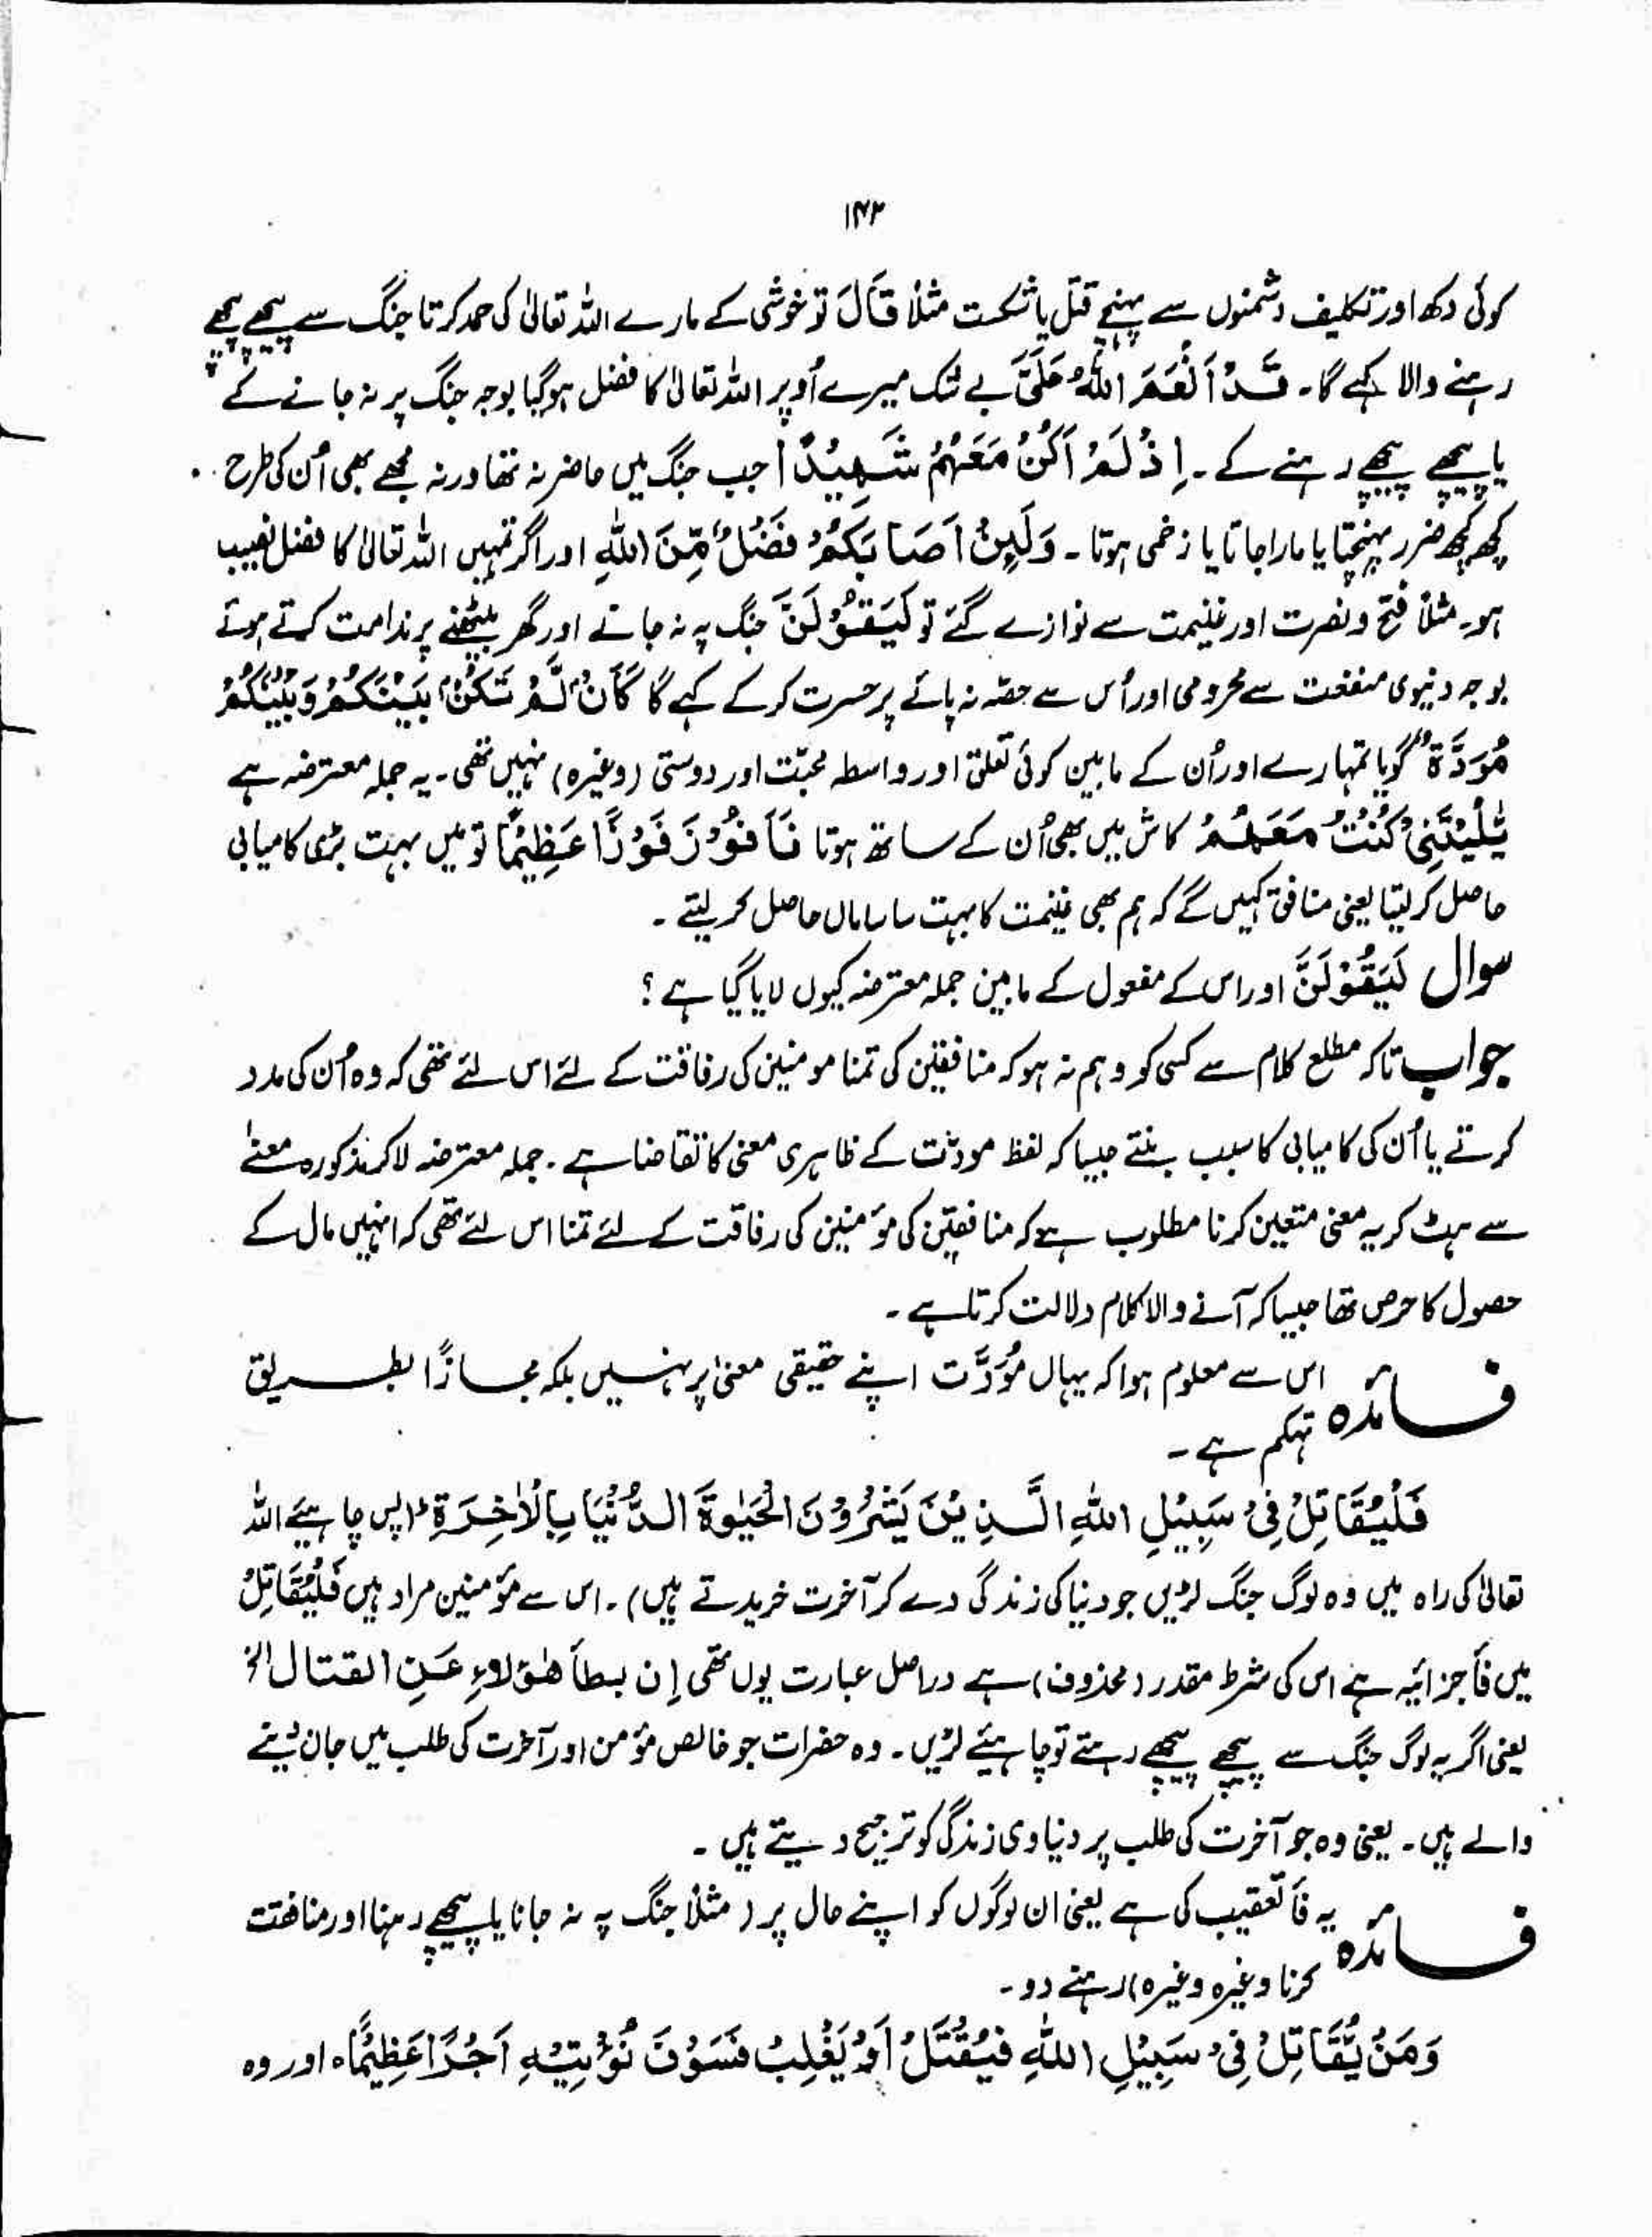 ۱۴۲
کوئی دکھ اور تکلیف دشمنوں سے پہنچے قتل یا شکست مثلاً قَالَ تو خوشی کے مارے اللہ تعالیٰ کی حمد کرتا جنگ سے پیچھے پیچھے
رہنے والا کہے گا۔ قَدْ اَنْعَمَ اللّٰهُ عَلَیَّ بے شک میرے اُوپر اللہ تعالیٰ کا فضل ہوگیا بوجہ جنگ پر نہ جانے کے
یا پیچھے پیچھے رہنے کے۔ اِذْ لَمْ اَكُنْ مَعَهُمْ شَهِیْدًا جب جنگ میں حاضر نہ تھا ورنہ مجھے بھی اُن کی طرح
کچھ کچھ ضرر پہنچتا یا مارا جاتا یا زخمی ہوتا۔ وَلَئِنْ اَصَابَكُمْ فَضْلٌ مِّنَ اللّٰهِ اور اگر تمہیں اللہ تعالیٰ کا فضل نصیب
ہو۔ مثلاً فتح و نصرت اور غنیمت سے نوازے گئے تو لَیَقُوْلَنَّ جنگ پہ نہ جانے اور گھر بیٹھنے پر ندامت کرتے ہوئے
بوجہ دنیوی منفعت سے محرومی اور اُس سے حصّہ نہ پائے پر حسرت کر کے کہے گا كَاَنْ لَّمْ تَكُنْ بَیْنَكُمْ وَبَیْنَكُمْ
مُوَدَّةٌ گویا تمہارے اور اُن کے مابین کوئی تعلق اور واسطہ محبّت اور دوستی (وغیرہ) نہیں تھی۔ یہ جملہ معترضہ ہے
یّٰلَیْتَنِیْ كُنْتُ مَعَهُمْ کاش میں بھی اُن کے ساتھ ہوتا فَاَفُوْزَ فَوْزًا عَظِیْمًا تو میں بہت بڑی کامیابی
حاصل کر لیتا یعنی منافق کہیں گے کہ ہم بھی غنیمت کا بہت سا سامان حاصل کر لیتے۔
سوال لَیَقُوْلَنَّ اور اس کے مفعول کے مابین جملہ معترضہ کیوں لایا گیا ہے؟
جواب تاکہ مطلع کلام سے کسی کو وہم نہ ہو کہ منافقین کی تمنا مومنین کی رفاقت کے لئے اس لئے تھی کہ وہ اُن کی مدد
کرتے یا اُن کی کامیابی کا سبب بنتے جیسا کہ لفظ مودّت کے ظاہری معنی کا تقاضا ہے۔ جملہ معترضہ لاکر مذکورہ معنےٰ
سے ہٹ کر یہ معنی متعین کرنا مطلوب ہے کہ منافقین کی مؤمنین کی رفاقت کے لئے تمنا اس لئے تھی کہ انہیں مال کے
حصول کا حرص تھا جیسا کہ آنے والا کلام دلالت کرتا ہے۔
فائدہ اس سے معلوم ہوا کہ یہاں مُوَدَّت اپنے حقیقی معنیٰ پر نہیں بلکہ مجازًا بطریق
تہکم ہے۔
فَلْیُقَاتِلْ فِیْ سَبِیْلِ اللّٰهِ الَّذِیْنَ یَشْرُوْنَ الْحَیٰوةَ الدُّنْیَا بِالْاٰخِرَةِ ؕ (پس چاہیئے اللہ
تعالیٰ کی راہ میں وہ لوگ جنگ لڑیں جو دنیا کی زندگی دے کر آخرت خریدتے ہیں)۔ اس سے مؤمنین مراد ہیں فَلْیُقَاتِلْ
میں فأ جزائیہ ہے اس کی شرط مقدر (محذوف) ہے دراصل عبارت یوں تھی اِن بطأ هٰؤلاءِ عَنِ القتال الخ
یعنی اگر یہ لوگ جنگ سے پیچھے پیچھے رہتے تو چاہیئے لڑیں۔ وہ حضرات جو خالص مؤمن اور آخرت کی طلب میں جان دینے
والے ہیں۔ یعنی وہ جو آخرت کی طلب پر دنیاوی زندگی کو ترجیح دیتے ہیں۔
فائدہ یہ فأ تعقیب کی ہے یعنی ان لوگوں کو اپنے حال پر (مثلاً جنگ پہ نہ جانا یا پیچھے رہنا اور منافقت
کرنا وغیرہ وغیرہ) رہنے دو۔
وَمَنْ یُّقَاتِلْ فِیْ سَبِیْلِ اللّٰهِ فَیُقْتَلْ اَوْ یَغْلِبْ فَسَوْفَ نُؤْتِیْهِ اَجْرًا عَظِیْمًا ۰ اور وہ